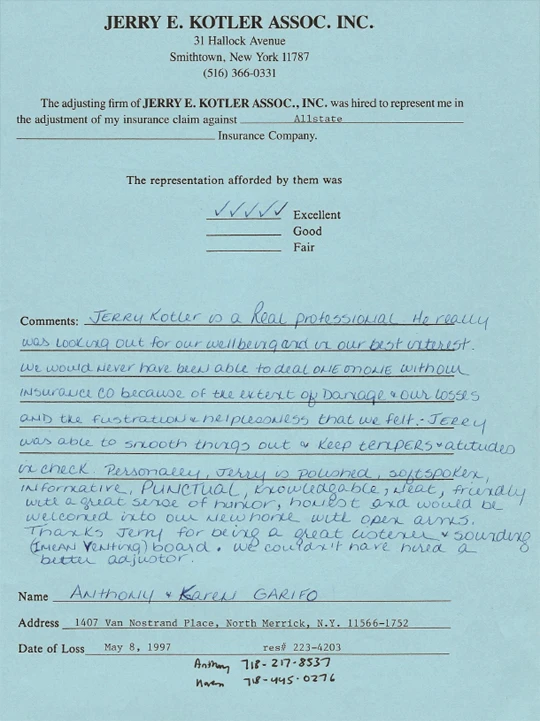 JERRY E. KOTLER ASSOC. INC.
31 Hallock Avenue
Smithtown, New York 11787
(516) 366-0331
The adjusting firm of JERRY E. KOTLER ASSOC., INC. was hired to represent me in
the adjustment of my insurance claim against Allstate
Insurance Company.
The representation afforded by them was
✓✓✓✓✓ Excellent
Good
Fair
Comments: JERRY Kotler is a Real professional. He really
was looking out for our wellbeing and in our best interest.
We would never have been able to deal ONE on ONE with our
INSURANCE CO because of the extent of Damage & our losses
AND the fustration & helplessness that we felt. - JERRY
was able to smooth things out & keep tempers & atitudes
in check. Personally, Jerry is polished, softspoken,
informative, PUNCTUAL, knowledgable, neat, friendly
with a great sense of humor, honest and would be
welcomed into our new home with open arms.
Thanks Jerry for being a great listener & sounding
(I MEAN VENTING) board. We couldn't have hired a
better adjustor.
Name ANTHONY & Karen GARIFO
Address 1407 Van Nostrand Place, North Merrick, N.Y. 11566-1752
Date of Loss May 8, 1997 res# 223-4203
Anthony 718-217-8537
Karen 718-445-0276